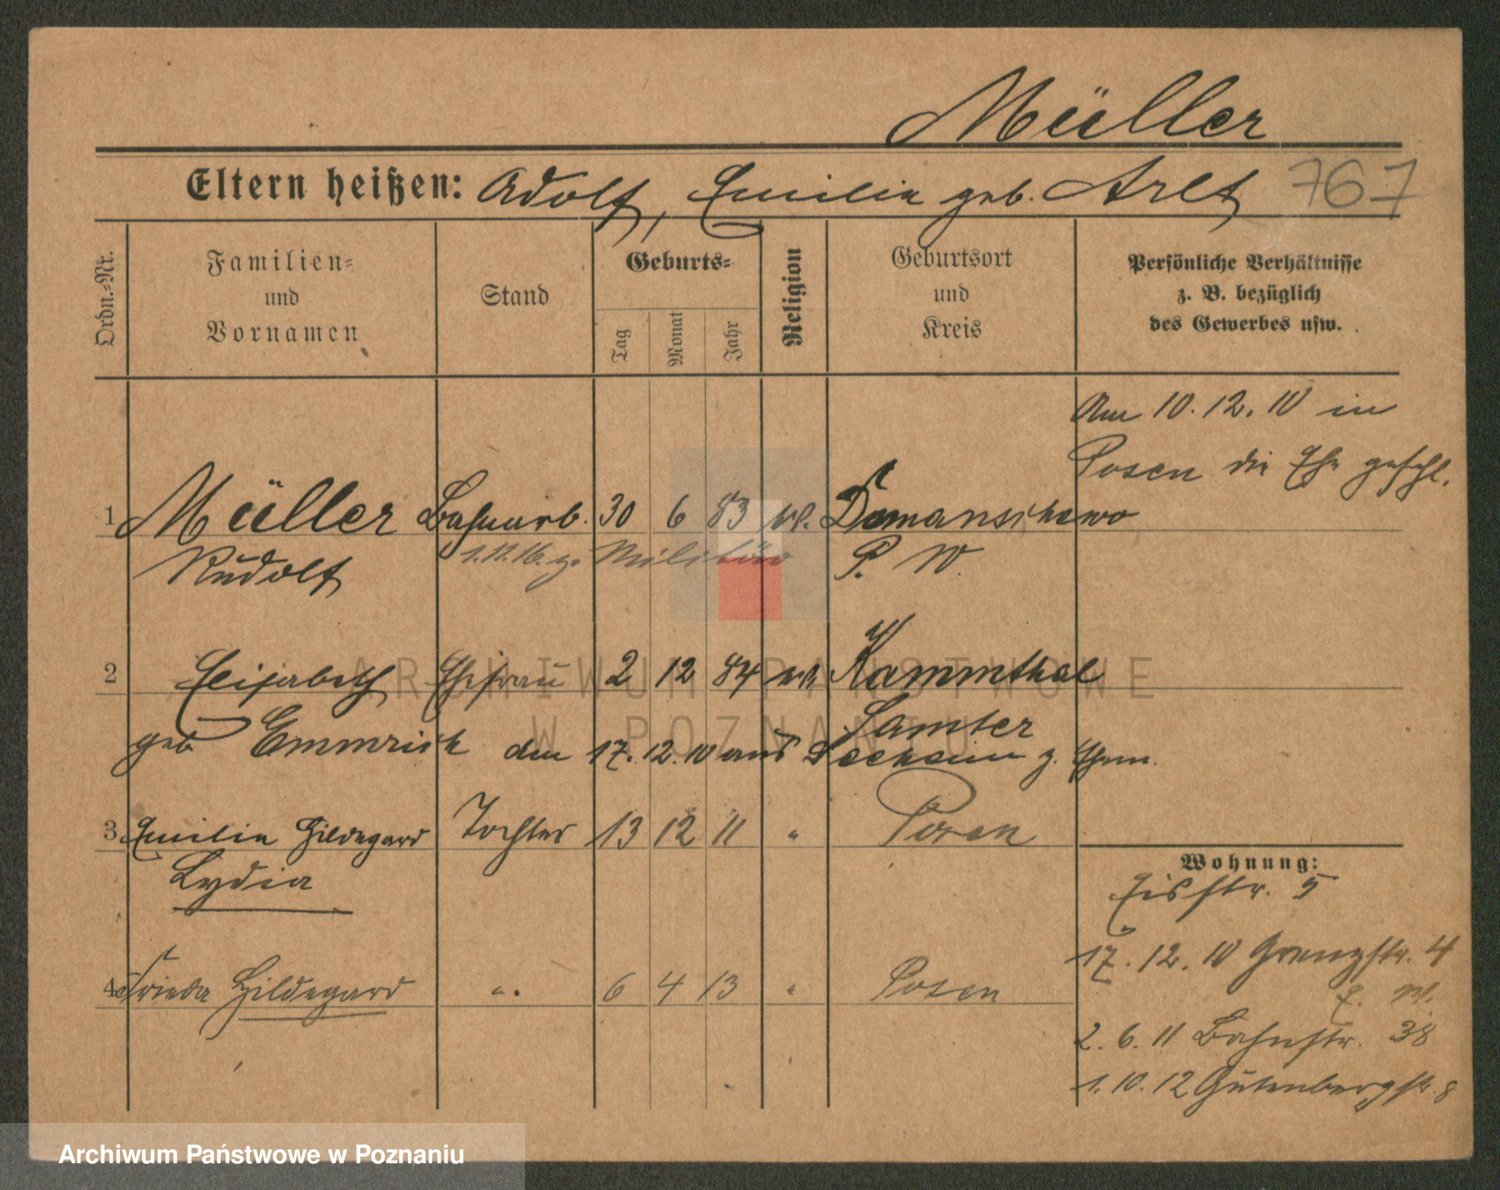 Müller
Eltern heißen: Adolf, Emilie geb. Arlt 767
Ordn.-Nr.
Familien-
und
Vornamen
Stand
Geburts-
Tag
Monat
Jahr
Religion
Geburtsort
und
Kreis
Persönliche Verhältnisse
z. B. bezüglich
des Gewerbes usw.
Am 10.12.10 in
Posen die Ehe geschl.
1 Müller Bahnarb. 30 6 83 ev.
Rudolf 1.11.16. z. Militär P. W.
2 Elisabeth Ehefrau 2 12 84 ev. Kammthal
Samter
geb Emmrich den 17.12.10 aus z. Ehem.
3 Emilie Hildegard Tochter 13 12 11 " Posen
Lydia
4 Frieda Hildegard " 6 4 13 " Posen
Wohnung:
Eisstr. 5
17.12.10 Grenzstr. 4
2.6.11 Bahnstr. 38
1.10.12 Gutenbergstr. 8
ARCHIWUM PAŃSTWOWE
W POZNANIU
Archiwum Państwowe w Poznaniu